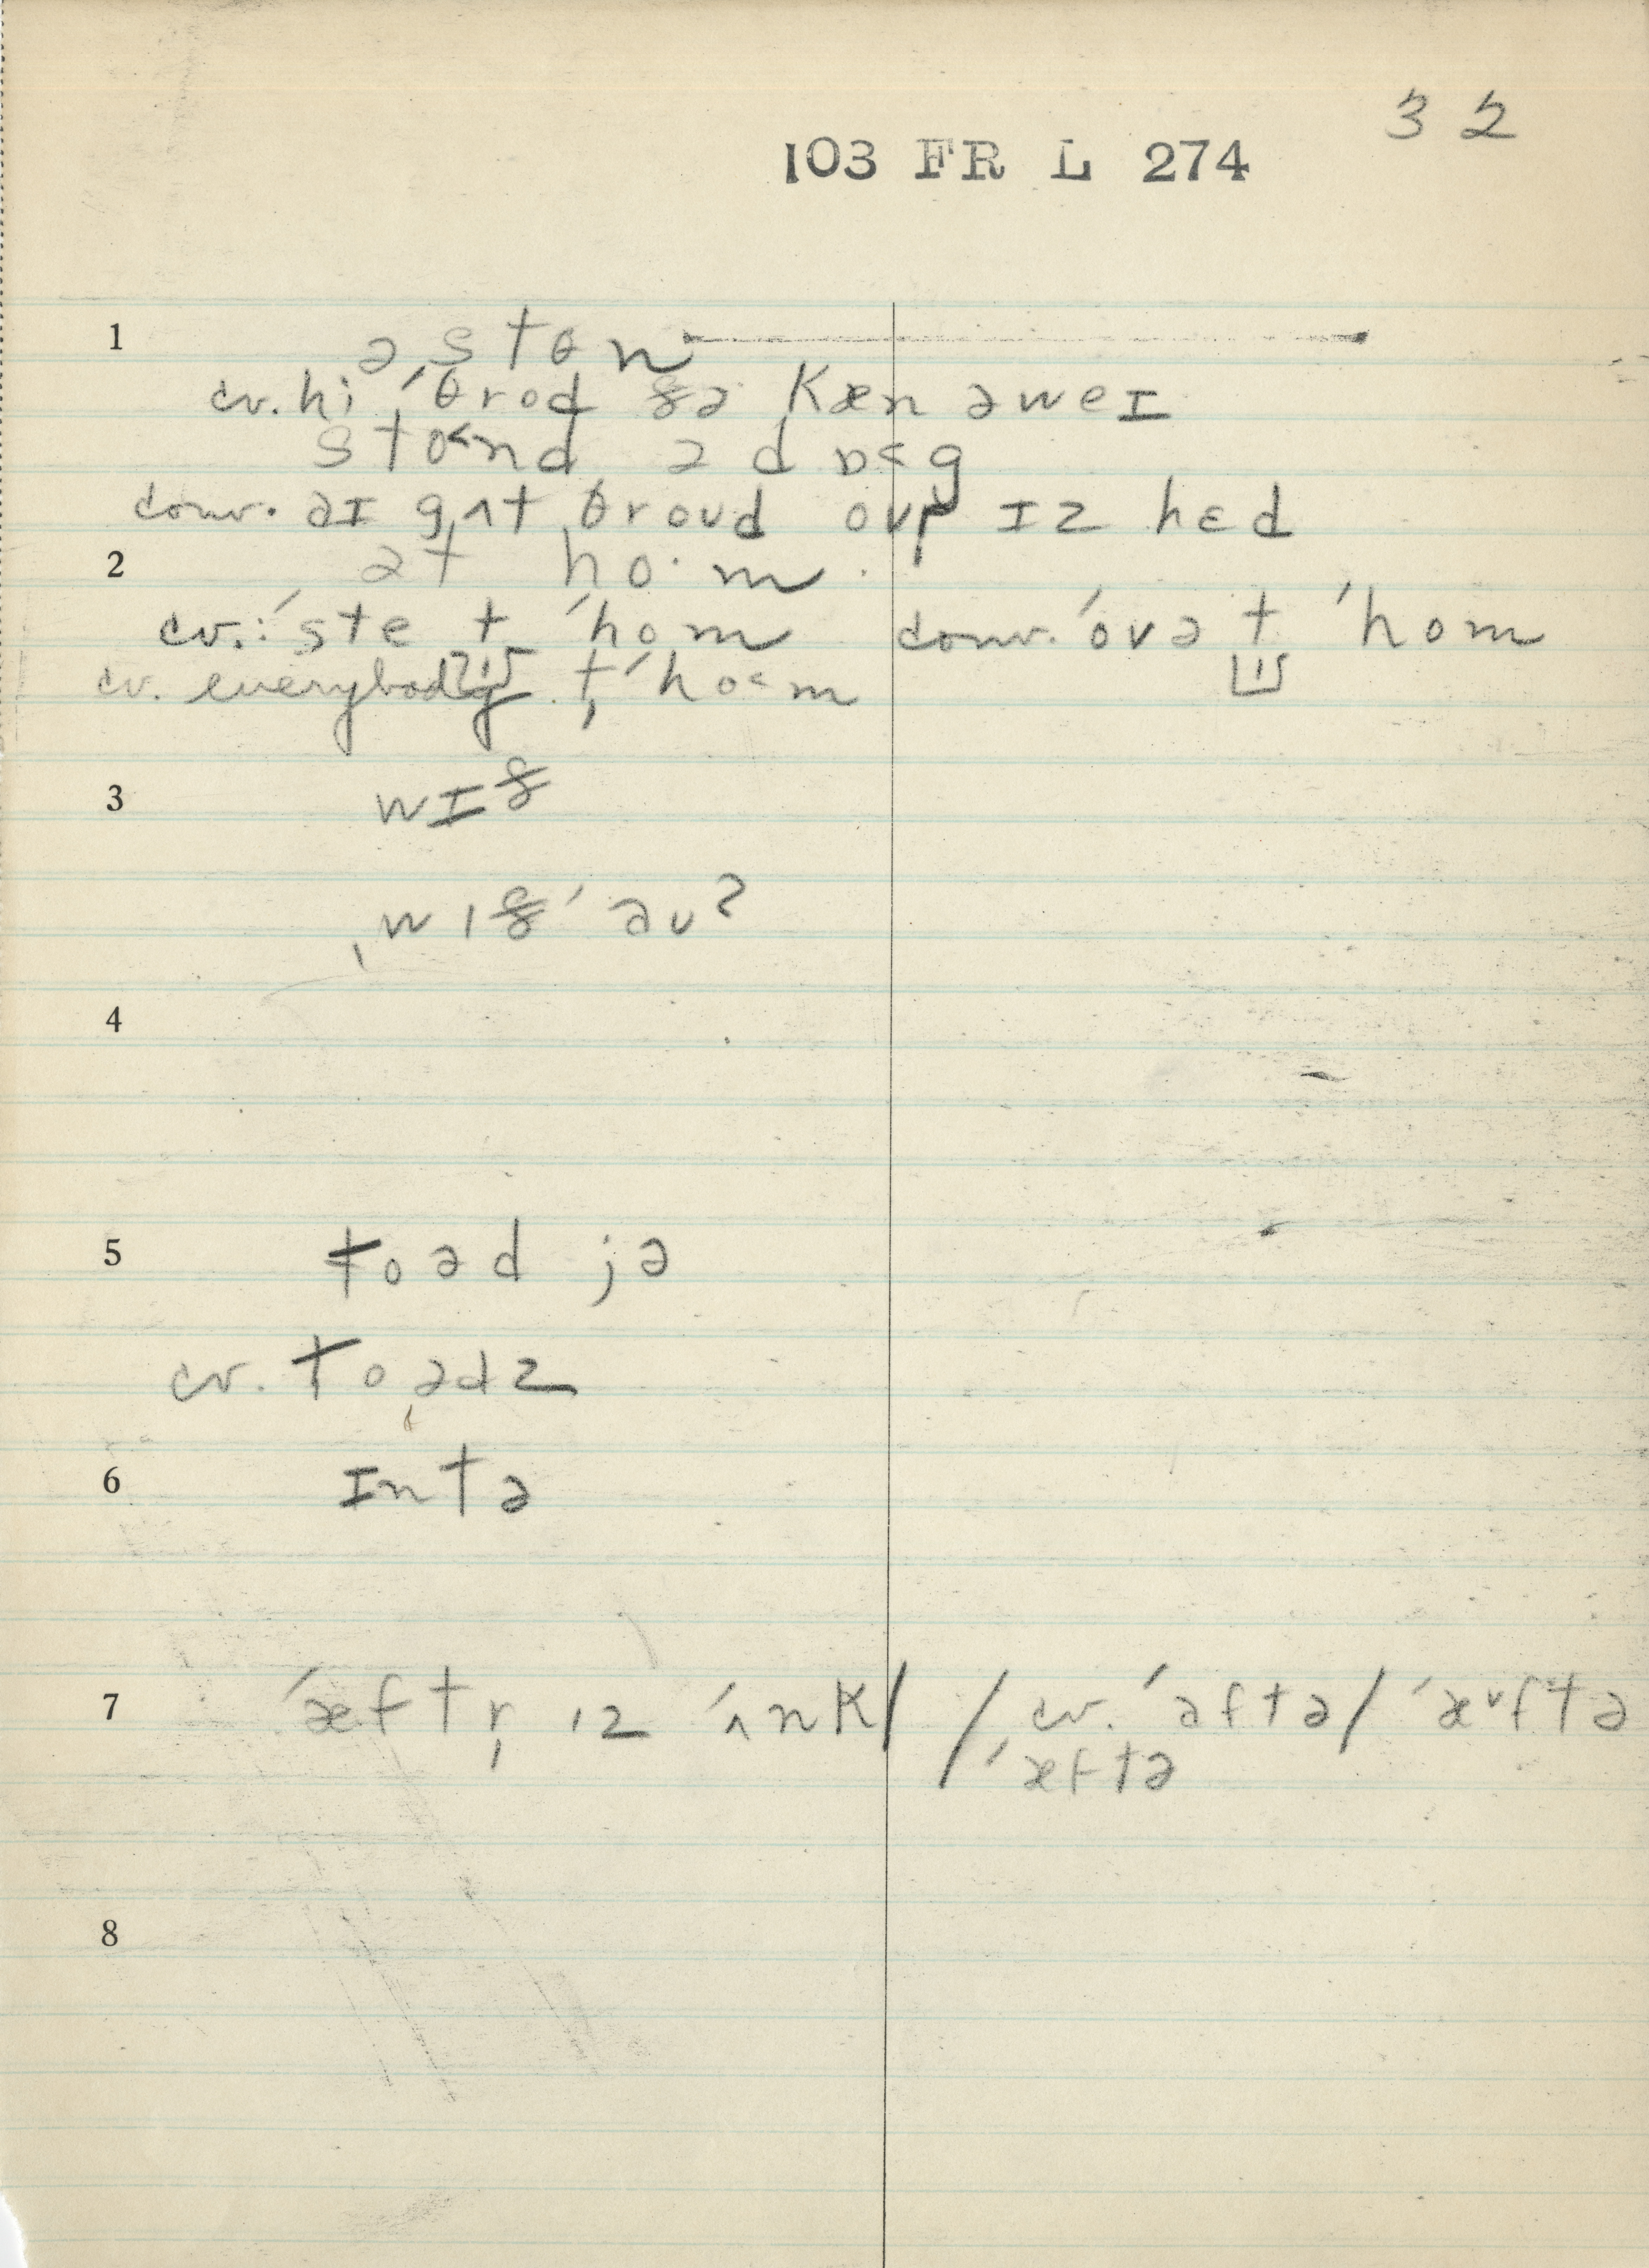 32
103 FR L 274
1 ə s t ɵ n
cv. hi ˈθrod ðə kæn əweɪ
stɵ˂nd ə dɒ˂g
conv. aɪ gʌt θroud ovr̩ ɪz hɛd
2 ət ho·m
cv. ˈste t ˈhom conv. ˈovə t ˈhom
cv. everybody t̩ ˈho˂m
3 wɪð
ˌwɪð ˈəu?
4
5 toəd jə
cv. toədz
6 ɪntə
7 ˈæftr̩ ɪz ˈʌnk/ /cv. ˈaftə/ ˈæ˅ftə
ˈæftə
8